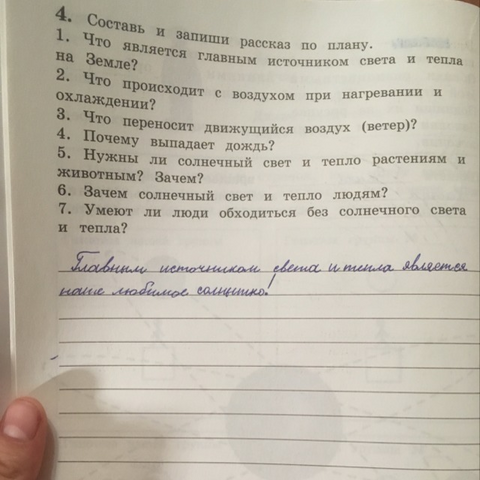 4. Составь и запиши рассказ по плану.
1. Что является главным источником света и тепла
на Земле?
2. Что происходит с воздухом при нагревании и
охлаждении?
3. Что переносит движущийся воздух (ветер)?
4. Почему выпадает дождь?
5. Нужны ли солнечный свет и тепло растениям и
животным? Зачем?
6. Зачем солнечный свет и тепло людям?
7. Умеют ли люди обходиться без солнечного света
и тепла?
Главным источником света и тепла является
наше любимое солнышко!